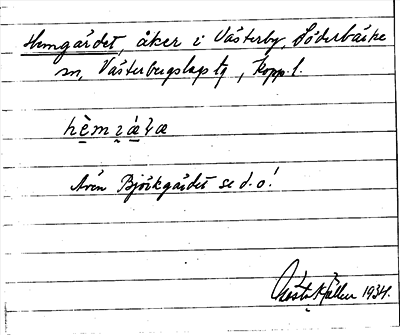 Hemgärdet, åker i Västerby, Söderbärke
sn, Västerbergslags tg, Kopp. l.
hèmɿä̀ƚæ
Även Björkgärdet se d. o!
Gösta Källen 1934.